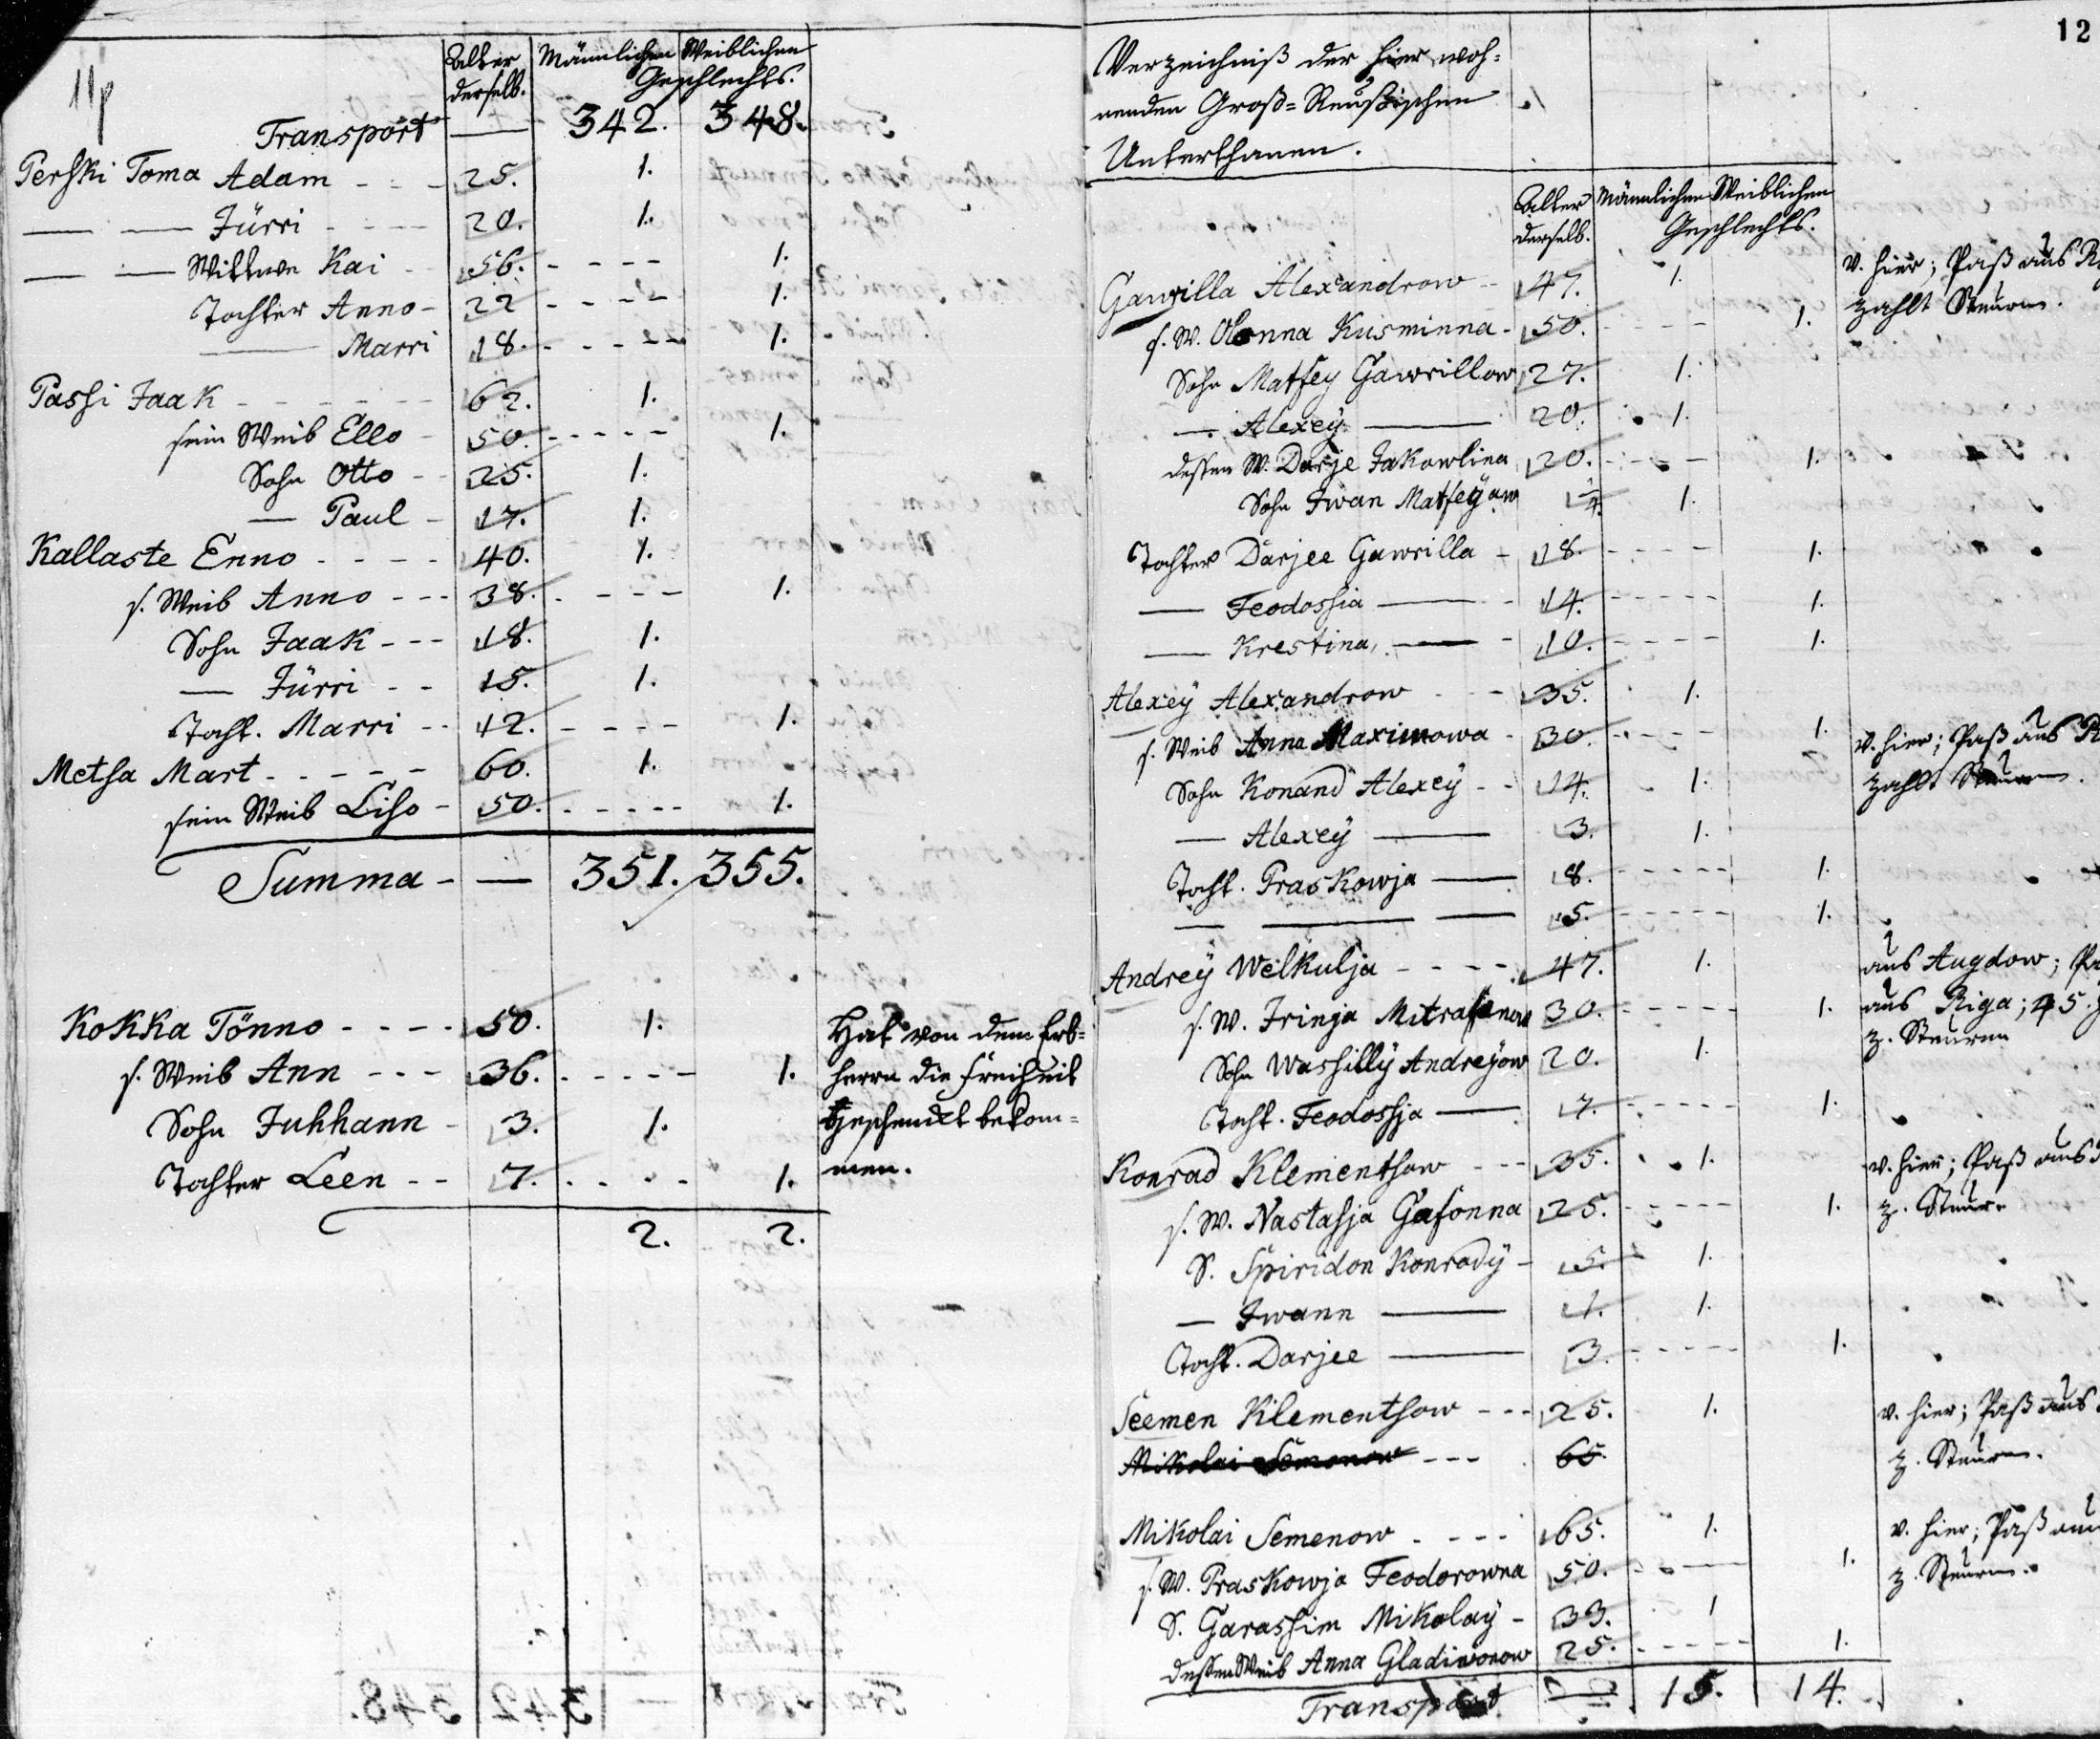 11p
Alter derselb. Männlichen Weiblichen
Geschlechts.
Transport — 342. 348.
Perski Toma Adam - - - 25. 1.
— — Jürri - - - - 20. 1.
— — Wittwe Kai - - 56. - - - - 1.
Tochter Anno - 22 - - - - 1.
— Marri 18. - - - - - 1.
Passi Jaak - - - - - - 62. 1.
sein Weib Ello - 50. - - - - - 1.
Sohn Otto - - 25. 1.
— Paul - 17. 1.
Kallaste Enno - - - - 40. 1.
s. Weib Anno - - - 38. - - - - 1.
Sohn Jaak - - - 18. 1.
— Jürri - - 15. 1.
Tocht. Marri - - 12. - - - - 1.
Metsa Mart - - - - - 60. 1.
sein Weib Liso - 50. - - - - - 1.
Summa - — 351. 355.
Kokka Tönno - - - - 50. 1. Hat von dem Erb-
s. Weib Ann - - - 36. - - - - - 1. herrn die Freiheit
Sohn Juhhann - 3. 1. geschenckt bekom-
Tochter Leen - - 7. - - - - 1. men.
2. 2.
12
Verzeichniß der hier woh-
nenden Groß=Reußischen
Unterthanen.
Alter derselb. Männlichen Weiblichen
Geschlechts.
Gawrilla Alexandrow - - 47. 1. v. hier; Paß aus
s. W. Olonna Kusminna - 50. - - - - 1. zahlt Steuern.
Sohn Matfey Gawrillow 27. 1.
— Alexey — 20. 1.
dessen W. Darje Jakowlina 20. - - - - 1.
Sohn Iwan Matfeyow 1/4. 1.
Tochter Darjee Gawrilla - 18. - - - - 1.
— Feodossia — - 14. - - - - - 1.
— Krestina — - 10. - - - - 1.
Alexey Alexandrow - - 35. 1.
s. Weib Anna Maximowa - 30. - - - - 1. v. hier; Paß aus
Sohn Konand Alexeÿ - - 14. 1. zahlt Steuern.
— Alexeÿ — 3. 1.
Tocht. Praskowja — 8. - - - - - 1.
— — — 5. - - - - - 1.
Andreÿ Welkulja - - - - 47. 1. aus Augdow;
s. W. Irinja Mitrafanowa 30. - - - - - 1. aus Riga; 45.
Sohn Wassillÿ Andreÿow 20. 1. z. Steuren
Tocht. Feodossja — 7. - - - - - 1.
Konrad Klementsow - - - 35. 1. v. hier; Paß aus
s. W. Nastasja Gafonna 25. - - - - - 1. z. Steur.
S. Spiridon Konradÿ - 5. 1.
— Iwann — 1. 1.
Tocht. Darjee — 3. - - - - - 1.
Seemen Klementsow - - - 25. 1. v. hier; Paß aus
Mikolai Semenow - - - 65. z. Steuren.
Mikolai Semenow - - - - 65. 1. v. hier; Paß aus
s. W. Praskowja Feodorowna 50. - - - 1. z. Steuren.
S. Garassim Mikolaÿ - 33. 1
dessen Weib Anna Gladiworow 25. - - - - - 1.
Transport — 15. 14.